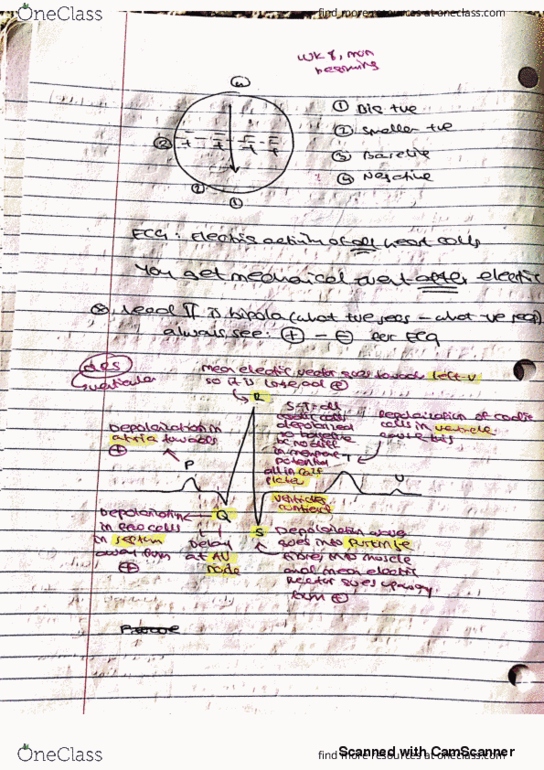 OneClass
find more resources at oneclass.com
WK 8, mon
① Big +ve
② Smaller +ve
③ Baseline
④ Negative
②
②
①
ECG: Electric activity of all heart cells
You get mechanical event after electric
Lead II is bipolar (what +ve sees - what -ve sees)
always see: + - ⊖ for ECG
mean electric vector goes towards left-v
so it is large, and ⊕
R
Depolarization in
atria towards
+
P
S-T = all
cells
depolarised
so baseline
in membrane
potential
all in
plateau
ventricles
Repolarization of cardiac
cells in ventricle
T
U
Depolarization
in cells
in septum
away from
+
Q
Delay
at AV
node
S
Depolarization wave
goes into purkinje
fibres, into muscle
and mean electric
vector goes away
from +
OneClass
Scanned with CamScanner
find more resources at oneclass.com